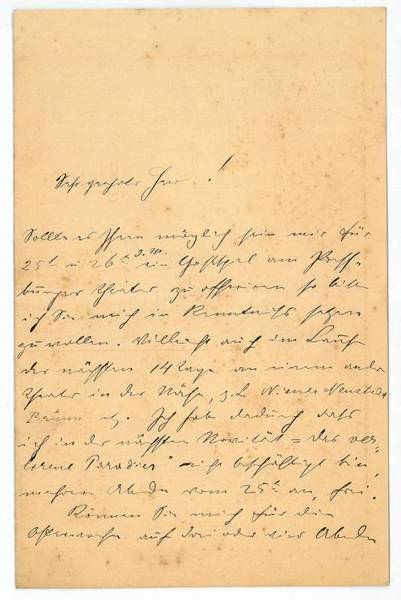 Sehr geehrter Herr!
Sollte es Ihnen möglich sein mir für
25t u 26t d. M. ein Gastspiel am Press-
burger Theater zu offeriren so bitte
ich Sie mich in Kenntniss setzen
zu wollen. Vielleicht auch im Laufe
der nächsten 14 Tage an einem andern
Theater in der Nähe, z.b. Wiener Neustadt
Brünn etz. Ich hab dadurch dass
ich in der nächsten Novität = das ver-
lorene Paradies" nicht beschäftigt bin,
mehrere Abende vom 25t an, frei.
Können Sie mich für die
Osterwoche auf drei oder vier Abende